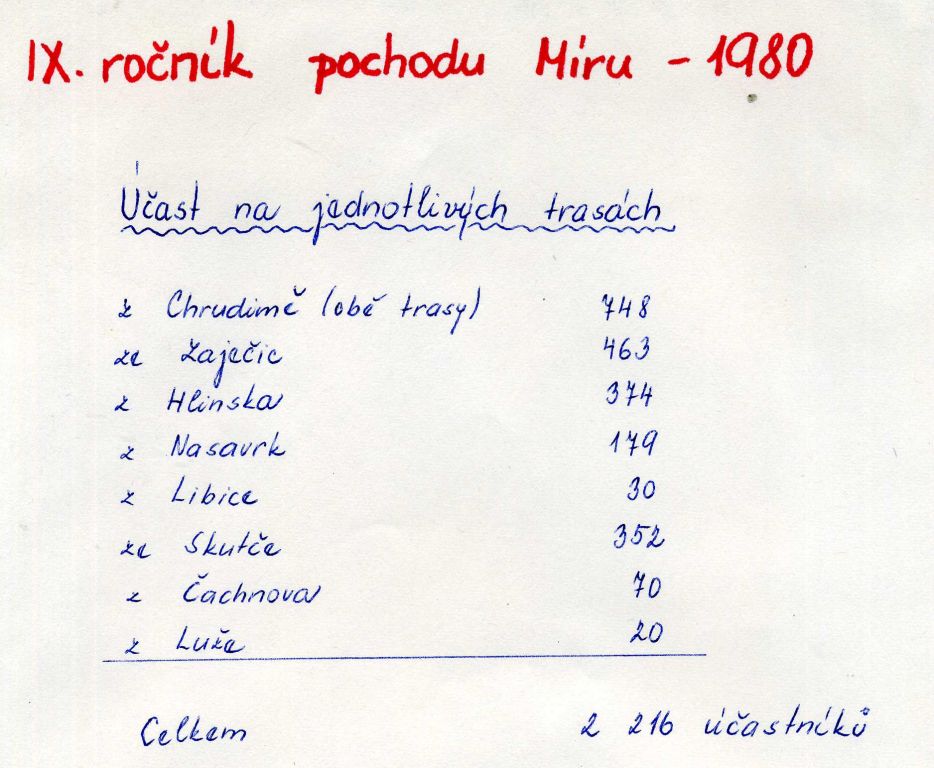 IX. ročník pochodu Míru - 1980
Účast na jednotlivých trasách
z Chrudimě (obě trasy) 748
ze Zaječic 463
z Hlinska 374
z Nasavrk 179
z Libice 30
ze Skutče 352
z Čachnova 70
z Luže 20
Celkem 2 216 účastníků